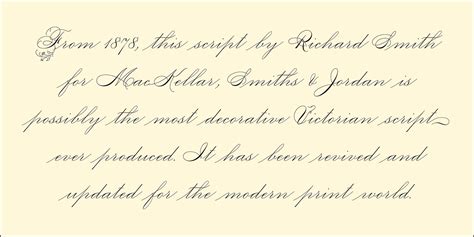 From 1878, this script by Richard Smith
for MacKellar, Smiths & Jordan is
possibly the most decorative Victorian script
ever produced. It has been revived and
updated for the modern print world.